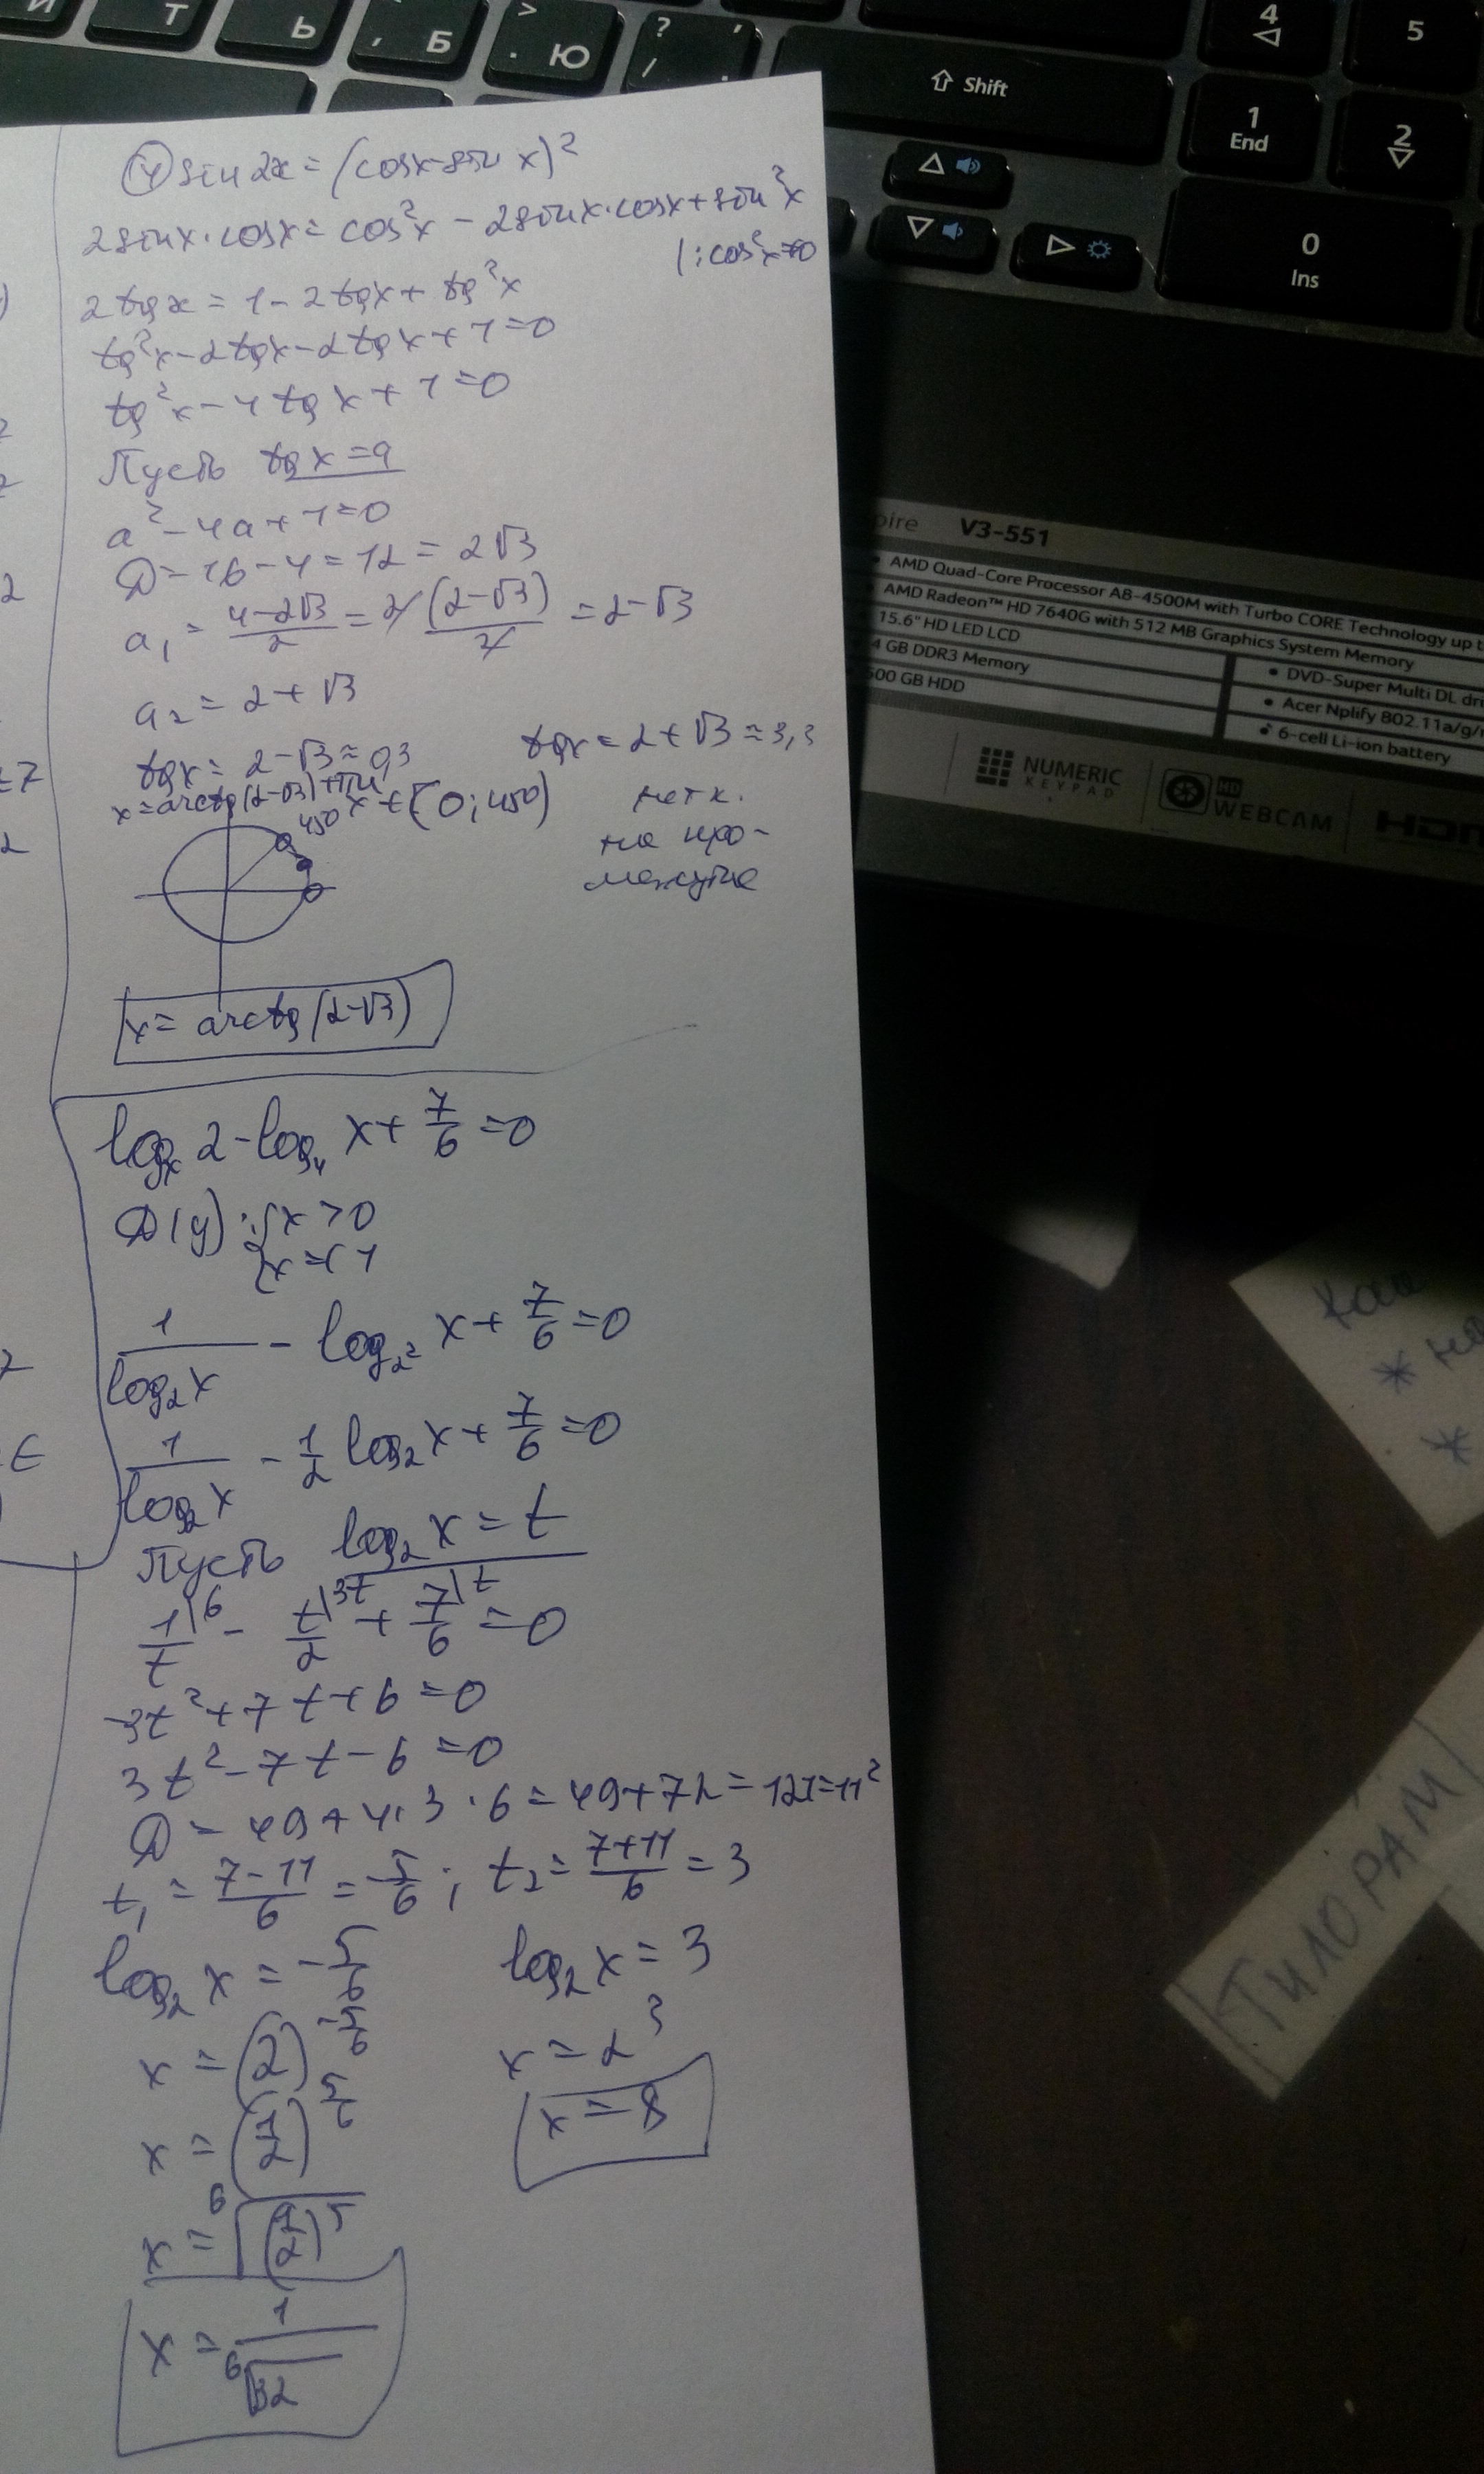 Т
Ь
, Б
> . Ю
? / , .
⇧ Shift
4
5
1
End
2
0
Ins
④ sin 2x = (cosx - sin x)²
2sinx·cosx = cos²x - 2sinx·cosx + sin²x
|:cos²x≠0
2tgx = 1 - 2tgx + tg²x
tg²x - 2tgx - 2tgx + 1 = 0
tg²x - 4tgx + 1 = 0
Пусть tgx = a
a² - 4a + 1 = 0
D = 16 - 4 = 12 = 2√3
a₁ = (4-2√3)/2 = 2(2-√3)/2 = 2-√3
a₂ = 2+√3
tgx = 2-√3 ≈ 0,3
tgx = 2+√3 ≈ 3,3
x = arctg(2-√3)+πn
45° x ∈ (0; 45°)
нет к.
на про-
межутке
x = arctg(2-√3)
logₓ2 - log₄x + 7/6 = 0
D(y): {x > 0
{x ≠ 1
1/log₂x - log₂²x + 7/6 = 0
1/log₂x - 1/2 log₂x + 7/6 = 0
Пусть log₂x = t
1/t |6 - t/2 |3t + 7/6 |t = 0
-3t² + 7t + 6 = 0
3t² - 7t - 6 = 0
D = 49 + 4·3·6 = 49 + 72 = 121 = 11²
t₁ = (7-11)/6 = -5/6 ; t₂ = (7+11)/6 = 3
log₂x = -5/6
log₂x = 3
x = (2)^(-5/6)
x = 2³
x = (1/2)^(5/6)
x = 8
x = ⁶√(1/2)⁵
x = 1/⁶√32
pire V3-551
• AMD Quad-Core Processor A8-4500M with Turbo CORE Technology up t
• AMD Radeon™ HD 7640G with 512 MB Graphics System Memory
15.6" HD LED LCD
4 GB DDR3 Memory
500 GB HDD
• DVD-Super Multi DL dri
• Acer Nplify 802.11a/g/n
• 6-cell Li-ion battery
NUMERIC
KEYPAD
HD
WEBCAM
HDM
* на
*
ТИЛОРАМ